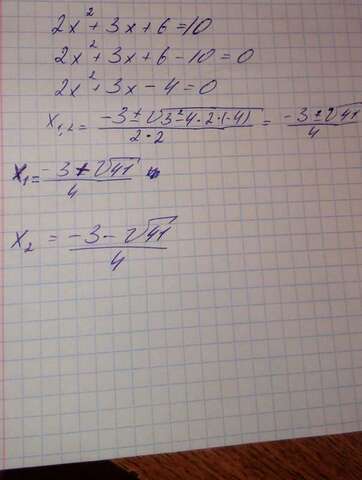 2x² + 3x + 6 = 10
2x² + 3x + 6 - 10 = 0
2x² + 3x - 4 = 0
x₁,₂ = (-3 ± √(3² - 4·2·(-4))) / (2·2) = (-3 ± √41) / 4
x₁ = (-3 + √41) / 4
x₂ = (-3 - √41) / 4